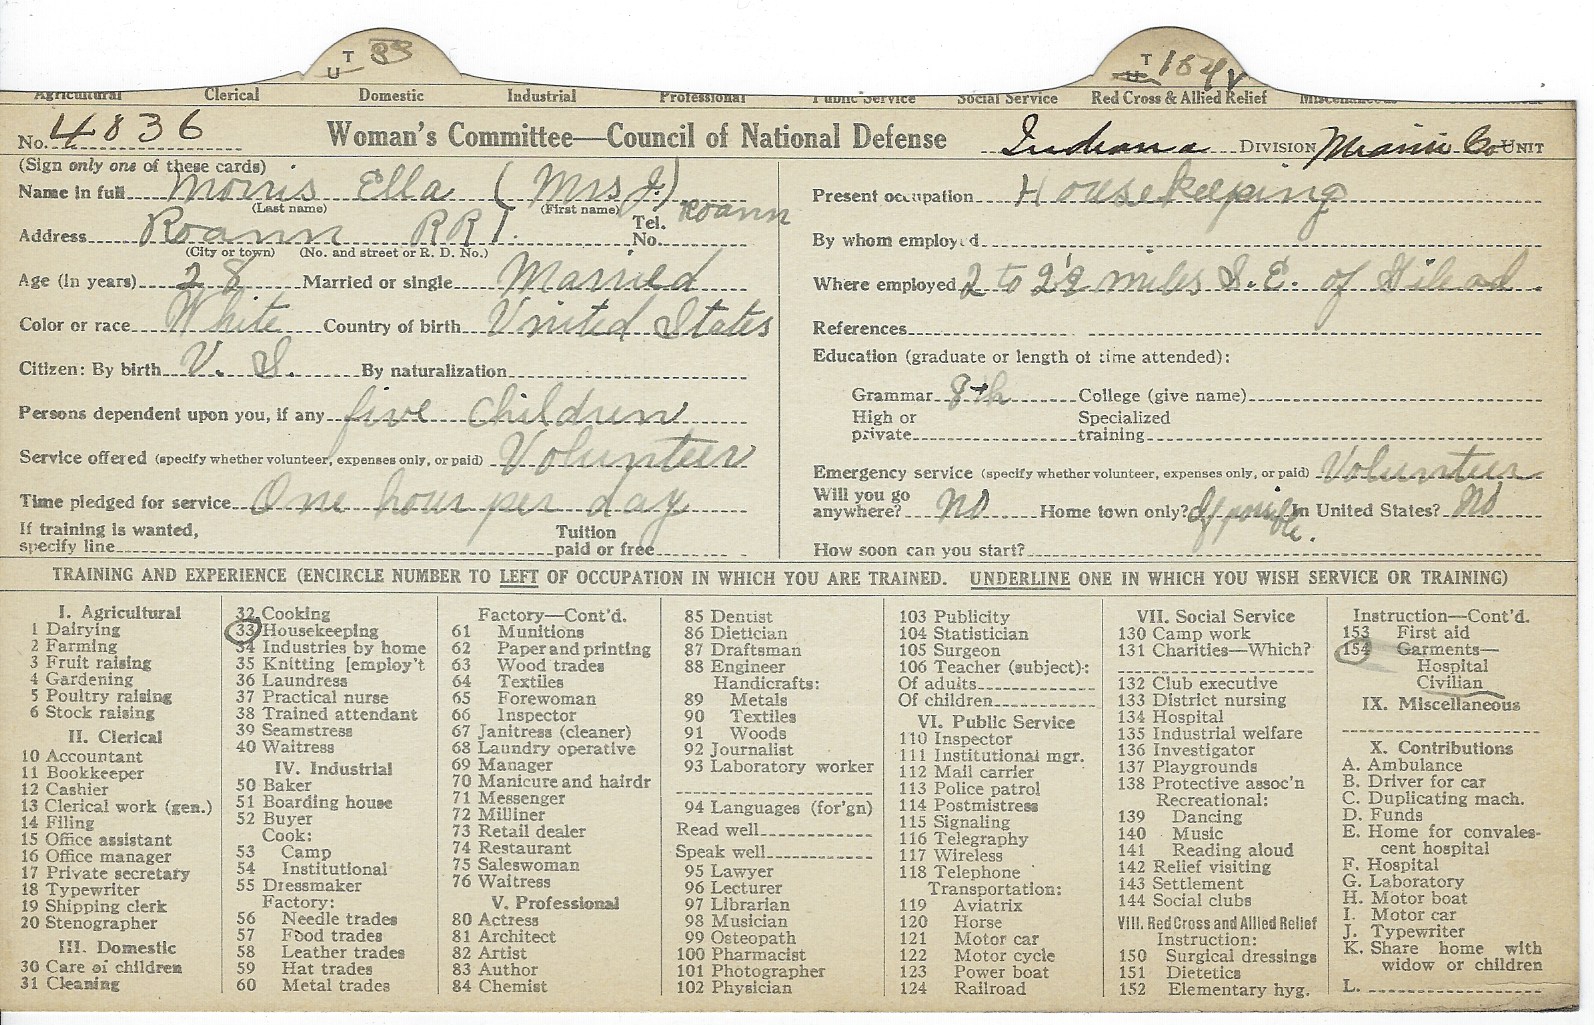 T 33
U
T 154 Y
U
Agricultural Clerical Domestic Industrial Professional Public Service Social Service Red Cross & Allied Relief Miscellaneous
No. 4836 Woman's Committee—Council of National Defense Indiana DIVISION Miami Co UNIT
(Sign only one of these cards)
Name in full Morris Ella (Mrs J.)
(Last name) (First name)
Address Roann RR 1. Tel. No. Roann
(City or town) (No. and street or R. D. No.)
Age (in years) 28 Married or single Married
Color or race White Country of birth United States
Citizen: By birth U. S. By naturalization
Persons dependent upon you, if any five children
Service offered (specify whether volunteer, expenses only, or paid) Volunteer
Time pledged for service One hour per day
If training is wanted, specify line Tuition paid or free
Present occupation Housekeeping
By whom employed
Where employed 2 to 2½ miles S. E. of Gilead.
References
Education (graduate or length of time attended):
Grammar 8th College (give name)
High or private Specialized training
Emergency service (specify whether volunteer, expenses only, or paid) Volunteer
Will you go anywhere? No Home town only? If possible. In United States? No
How soon can you start?
TRAINING AND EXPERIENCE (ENCIRCLE NUMBER TO LEFT OF OCCUPATION IN WHICH YOU ARE TRAINED. UNDERLINE ONE IN WHICH YOU WISH SERVICE OR TRAINING)
I. Agricultural
1 Dairying
2 Farming
3 Fruit raising
4 Gardening
5 Poultry raising
6 Stock raising
II. Clerical
10 Accountant
11 Bookkeeper
12 Cashier
13 Clerical work (gen.)
14 Filing
15 Office assistant
16 Office manager
17 Private secretary
18 Typewriter
19 Shipping clerk
20 Stenographer
III. Domestic
30 Care of children
31 Cleaning
32 Cooking
33 Housekeeping
34 Industries by home
35 Knitting [employ't
36 Laundress
37 Practical nurse
38 Trained attendant
39 Seamstress
40 Waitress
IV. Industrial
50 Baker
51 Boarding house
52 Buyer
Cook:
53 Camp
54 Institutional
55 Dressmaker
Factory:
56 Needle trades
57 Food trades
58 Leather trades
59 Hat trades
60 Metal trades
Factory—Cont'd.
61 Munitions
62 Paper and printing
63 Wood trades
64 Textiles
65 Forewoman
66 Inspector
67 Janitress (cleaner)
68 Laundry operative
69 Manager
70 Manicure and hairdr
71 Messenger
72 Milliner
73 Retail dealer
74 Restaurant
75 Saleswoman
76 Waitress
V. Professional
80 Actress
81 Architect
82 Artist
83 Author
84 Chemist
85 Dentist
86 Dietician
87 Draftsman
88 Engineer
Handicrafts:
89 Metals
90 Textiles
91 Woods
92 Journalist
93 Laboratory worker
94 Languages (for'gn)
Read well
Speak well
95 Lawyer
96 Lecturer
97 Librarian
98 Musician
99 Osteopath
100 Pharmacist
101 Photographer
102 Physician
103 Publicity
104 Statistician
105 Surgeon
106 Teacher (subject):
Of adults
Of children
VI. Public Service
110 Inspector
111 Institutional mgr.
112 Mail carrier
113 Police patrol
114 Postmistress
115 Signaling
116 Telegraphy
117 Wireless
118 Telephone
Transportation:
119 Aviatrix
120 Horse
121 Motor car
122 Motor cycle
123 Power boat
124 Railroad
VII. Social Service
130 Camp work
131 Charities—Which?
132 Club executive
133 District nursing
134 Hospital
135 Industrial welfare
136 Investigator
137 Playgrounds
138 Protective assoc'n
Recreational:
139 Dancing
140 Music
141 Reading aloud
142 Relief visiting
143 Settlement
144 Social clubs
VIII. Red Cross and Allied Relief
Instruction:
150 Surgical dressings
151 Dietetics
152 Elementary hyg.
Instruction—Cont'd.
153 First aid
154 Garments—
Hospital
Civilian
IX. Miscellaneous
X. Contributions
A. Ambulance
B. Driver for car
C. Duplicating mach.
D. Funds
E. Home for convales-
cent hospital
F. Hospital
G. Laboratory
H. Motor boat
I. Motor car
J. Typewriter
K. Share home with
widow or children
L.